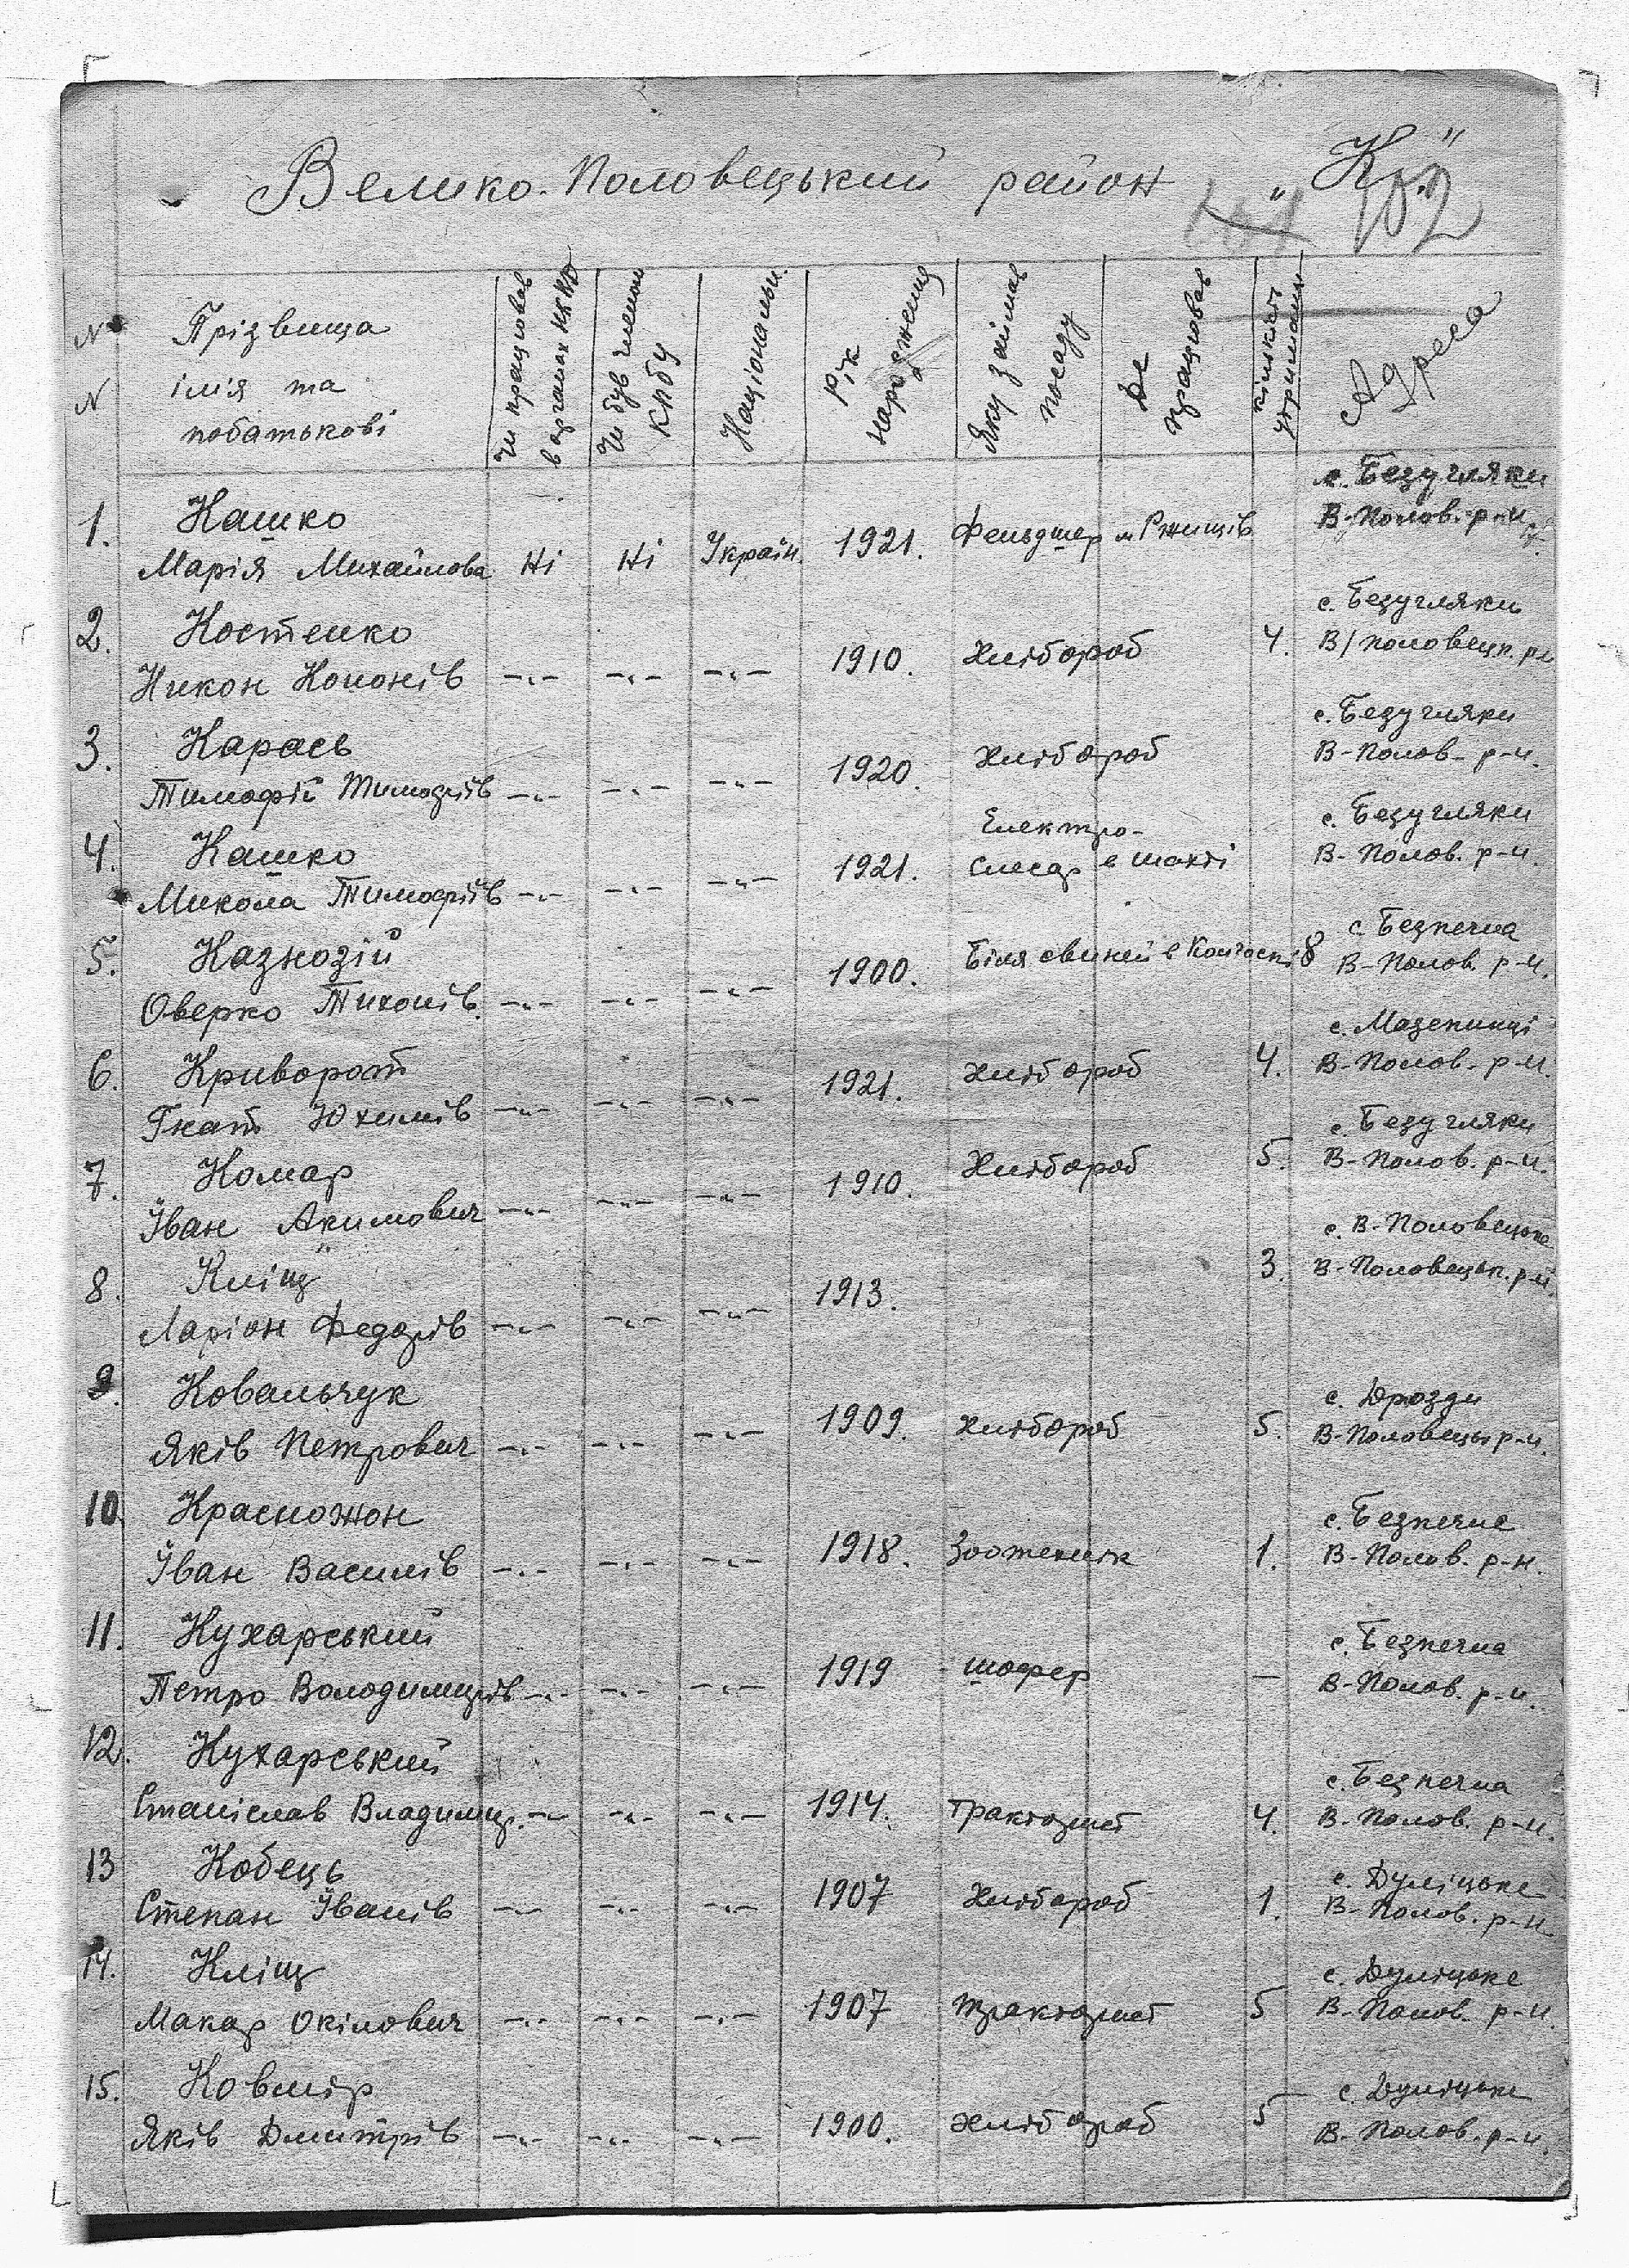 Велико-Половецький район „К"
102
N N
Прізвища ім'я та побатькові
Чи працював в органах НКВД
Чи був членом КПбУ
Національн.
Рік народження
Яку займав посаду
Де працював
кількість утриманц
Адреса
с. Безугляки
1. Кашко 1921. Фельдшер м Ржищів В-Полов. р-н
Марія Михайлова Ні Ні Україн.
с. Безугляки
2. Костенко 1910. Хлібороб 4. В/Половецк. рн
Никон Кононів —"— —"— —"—
с. Безугляки
3. Карась 1920 Хлібороб В-Полов- р-н.
Тимофій Тимофіїв —"— —"— —"—
Електро- с. Безугляки
4. Кашко 1921. Слесар в шахті В-Полов. р-н.
Микола Тимофіїв —"— —"— —"—
с. Безпечна
5. Казнозій 1900. Біля свиней в Колгоспі 8 В-Полов. р-н.
Оверко Тихонів. —"— —"— —"—
с. Мазепинці
6. Криворот 1921. Хлібороб 4. В-Полов. р-н.
Гнат Юхимів —"— —"— —"—
с. Безугляки
7. Комар 1910. Хлібороб 5. В-Полов. р-н.
Іван Акимович —"— —"— —"—
с. В-Половецьке
8. Кліщ 1913. 3. В-Половецьк. р-н.
Ларіон Федорів —"— —"— —"—
с. Дрозди
9. Ковальчук 1909. Хлібороб 5. В-Половецьк р-н.
Яків Петрович —"— —"— —"—
с. Безпечне
10. Красножон 1918. Зоотехнік 1. В-Полов. р-н.
Іван Василів —"— —"— —"—
с. Безпечна
11. Кухарський 1919 шофер — В-Полов. р-н.
Петро Володимирів —"— —"— —"—
12. Кухарський с. Безпечна
Станіслав Владимир. —"— —"— —"— 1914. тракторист 4. В-Полов. р-н.
13 Кобець 1907 Хлібороб 1. с. Дуліцьке
Степан Іванів —"— —"— —"— В-Полов. р-н
14. Кліщ с. Дуліцьке
Макар Окімович —"— —"— —"— 1907 тракторист 5 В-Полов. р-н.
15. Ковмір с. Дуліцьке
Яків Дмитрів —"— —"— —"— 1900. хлібороб 5 В-Полов. р-н.